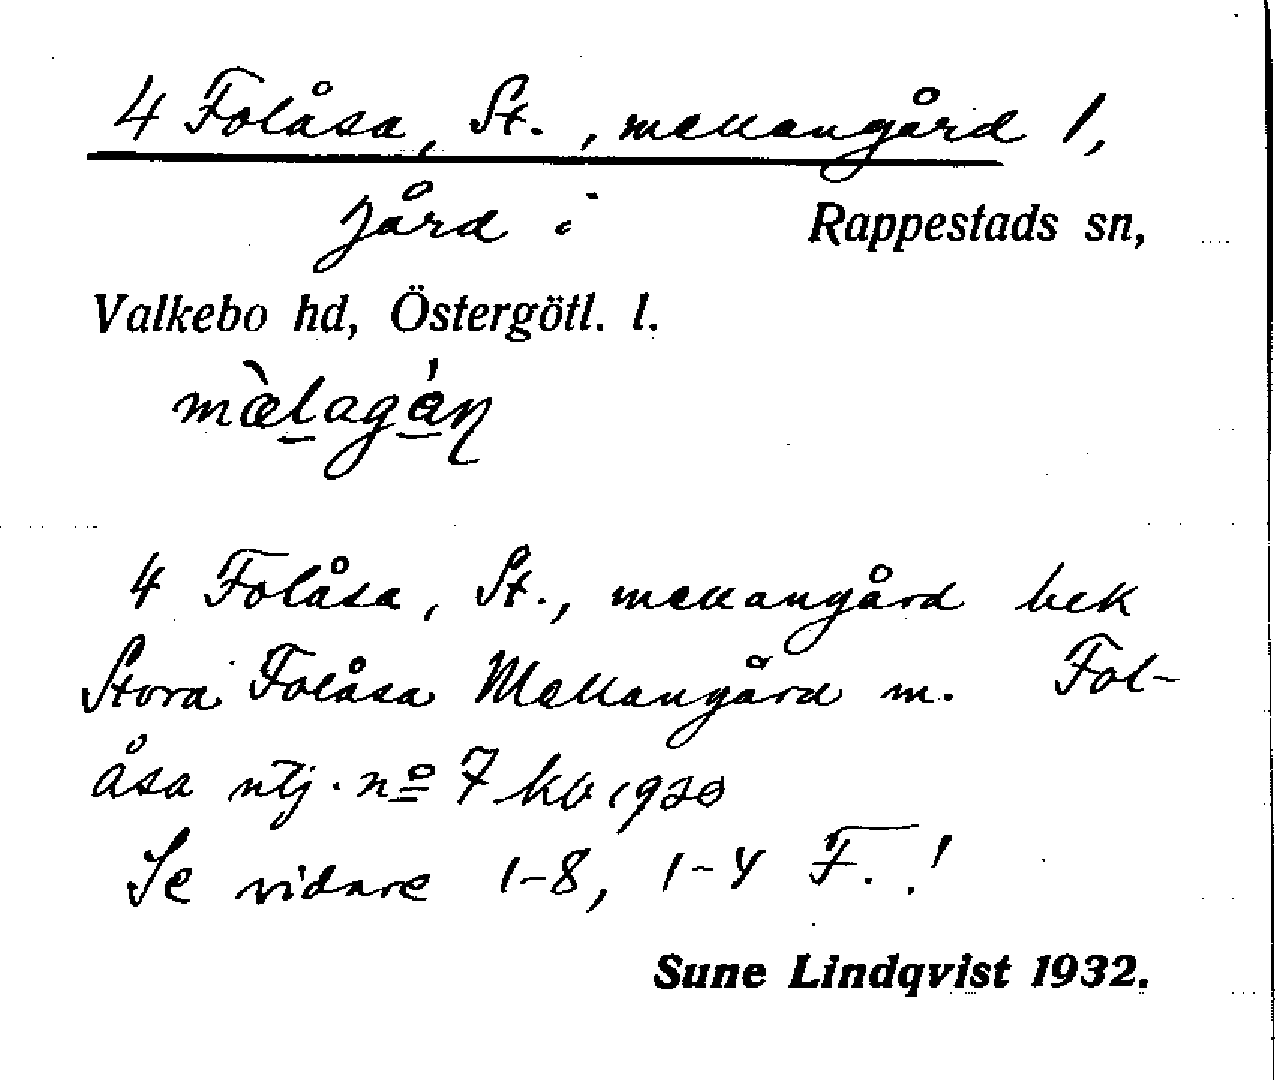 4 Folåsa, St., mellangård 1,
gård i Rappestads sn,
Valkebo hd, Östergötl. l.
4 Folåsa, St., mellangård bek
Stora Folåsa Mellangård m. Fol-
åsa utj. nº 7 kb 1920
Se vidare 1-8, 1-4 F.!
Sune Lindqvist 1932.